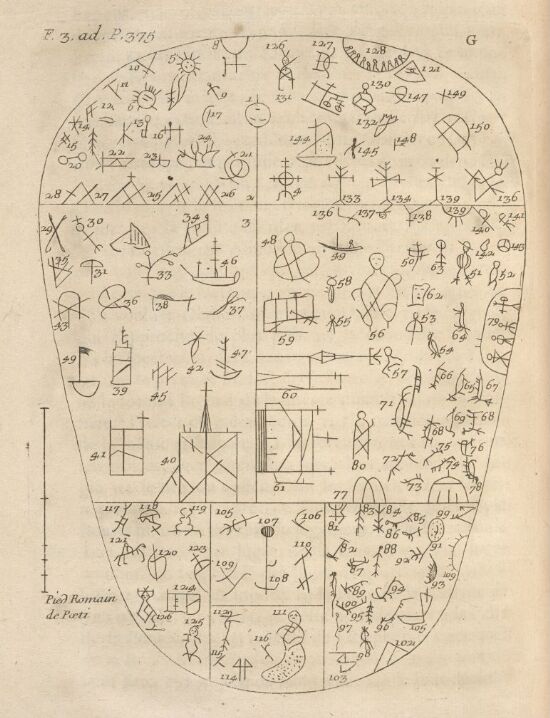 F. 3. ad. P. 375
G
8 126 127 128
10 5 121
11 6 9 131 130 147 149
12 17 1 132
14 13 16 150
15 144 145 148
20 22 23 24 21
4
28 27 25 26 2 133 134 139 136
136 137 138 139 141
29 30 34 3 140
46 48 49 50 63 142 143
35 31 33 51 52
58 62
43 36 38 37 56 79
59 55 53 64
54
49 39 45 42 47 57 66
60 65 67
71
41 40 69 68
68
80 75 76
72 74
61 73 78
77
117 118 119 105 107 106 81 83 84 85 99
121 110 82 88 91
120 123 87
109 108 93 109
89 94
124 90 95
126 125 112 111 97 96 105
116
115 102
114 103
Pied Romain
de Pœti